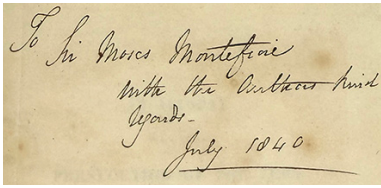 To
Sir Moses Montefiore
with the Authors kind
regards -
July 1840